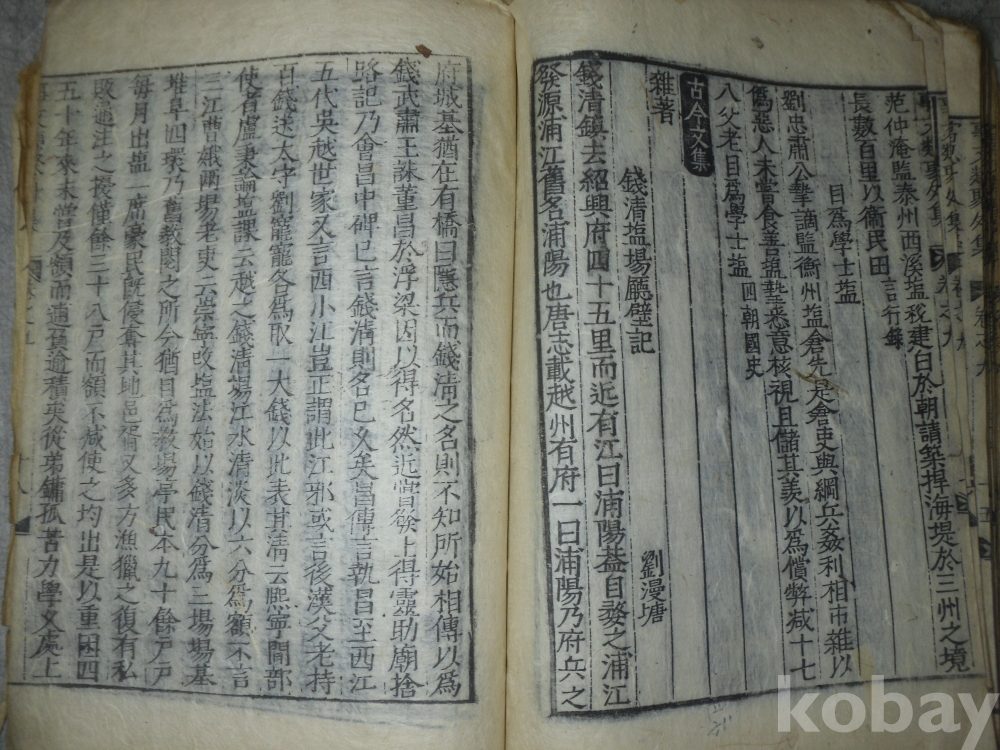 范仲庵監泰州西溪塩稅建白於朝請築捍海堤於三州之境
長數百里以衛民田 言行錄
目爲學士塩
劉忠肅公摯謫監衡州塩倉先是倉吏與綱兵姦利相市雜以
僞惡人未嘗食善塩摯悉意核視且儲其羨以爲償弊減十七
八父老目爲學士塩 四朝國史
古今文集
雜著
錢清塩場廳壁記 劉漫塘
錢清鎮去紹興府四十五里而近有江曰浦陽蓋自婺之浦江
發源浦江舊名浦陽也唐志載越州有府一曰浦陽乃府兵之
府城基猶在有橋曰隱兵而錢清之名則不知所始相傳以爲
錢武肅王誅董昌於浮梁因以得名然近嘗發土得靈助廟捨
路記乃會昌中碑已言錢清則名已久矣昌傳言執昌至西江
五代吳越世家又言西小江豈正謂此江邪或言後漢父老持
百錢送太守劉寵寵各爲取一大錢以此表其清云熙寧間部
使者盧秉論塩課云越之錢清場江水清淡以六分爲額不言
三江曹娥兩場老吏云崇寧改塩法始以錢清分爲三場場基
堆阜四環乃舊教閱之所今猶目爲教場亭民本九十餘戶戶
每月出塩一席豪民旣侵奪其地邑胥又多方漁獵之復有私
敗逋注之擾僅餘三十八戶而額不減使之均出是以重困四
五十年來未嘗及額而逋負逾積矣從弟鏞孤苦力學文處上